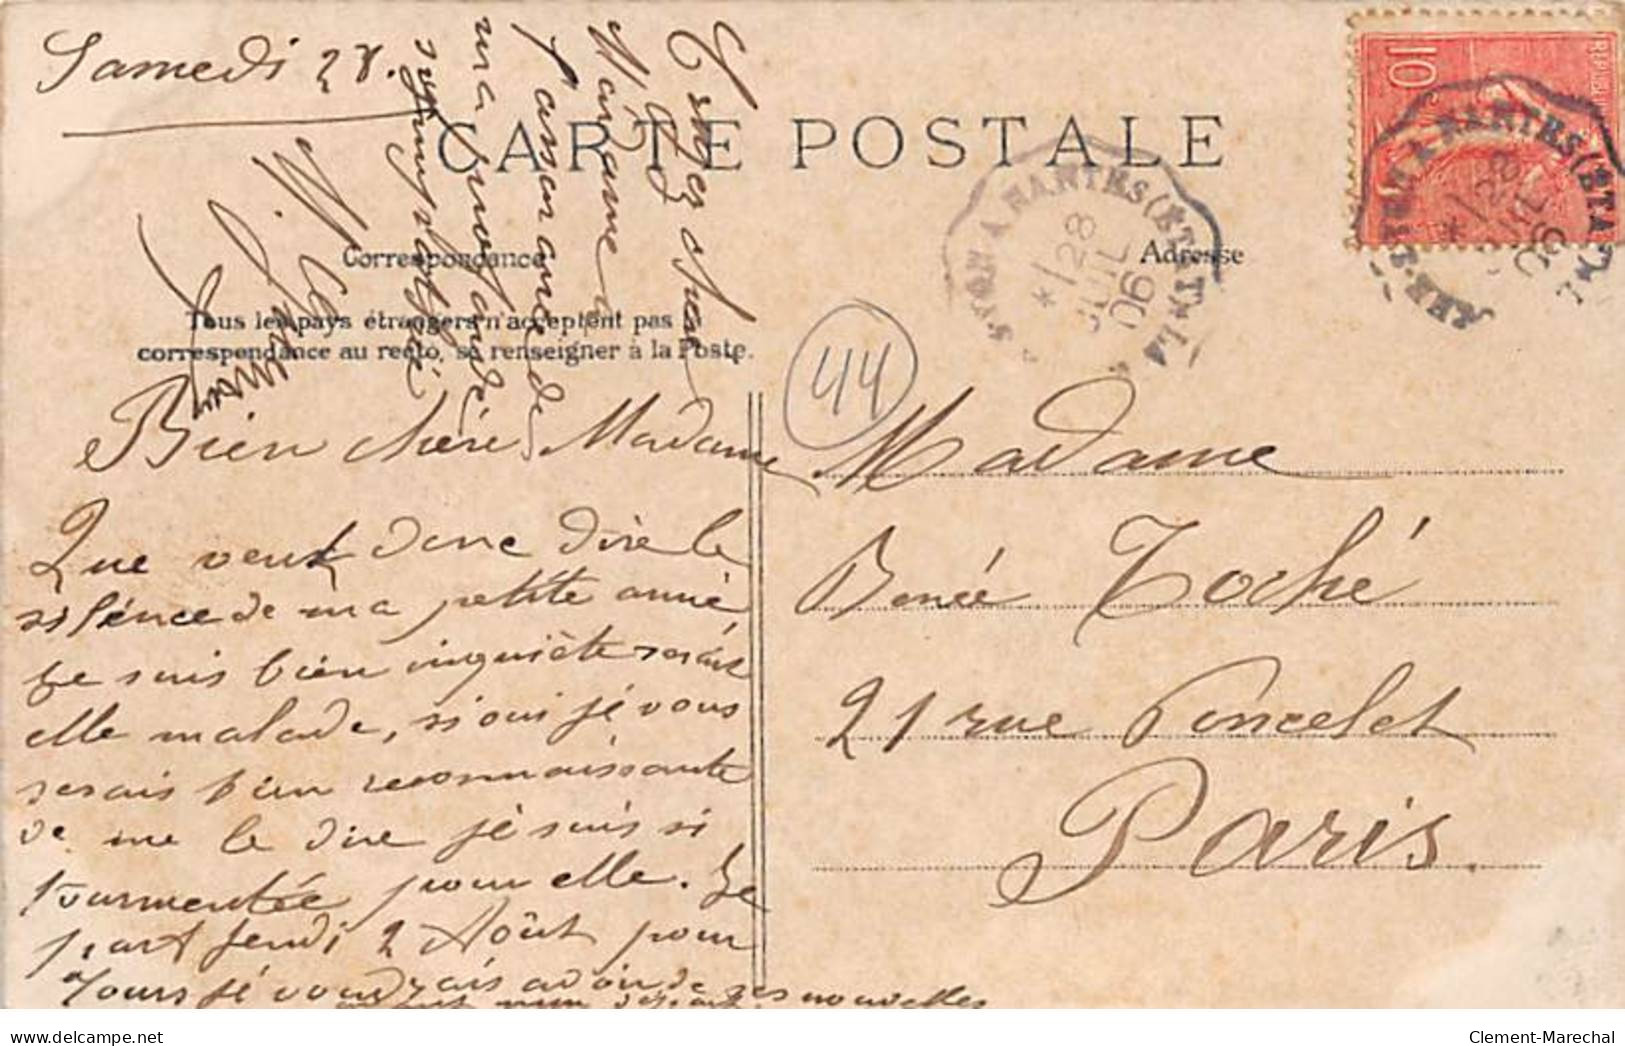 Samedi 28.
CARTE POSTALE
Correspondance
Adresse
Tous les pays étrangers n'acceptent pas la
correspondance au recto, se renseigner à la Poste.
10
NANTES (ÉTAT)
28
JUIL
06
44
Bien chère Madame
Que veut donc dire le
silence de ma petite amie
je suis bien inquiète serait
elle malade, si oui je vous
serais bien reconnaissante
de me le dire je suis si
tourmentée pour elle. Je
part Jeudi 2 Août pour
Tours je voudrais avoir de ses nouvelles
avant mon départ
Madame
Toché
21 rue Poncelet
Paris.
chère
Madame
l'assurance de
ma
sympathie
delcampe.net
Clement-Marechal